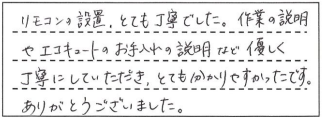 リモコンの設置、とても丁寧でした。作業の説明
やエコキュートのお手入れの説明など優しく
丁寧にしていただき、とても分かりやすかったです。
ありがとうございました。